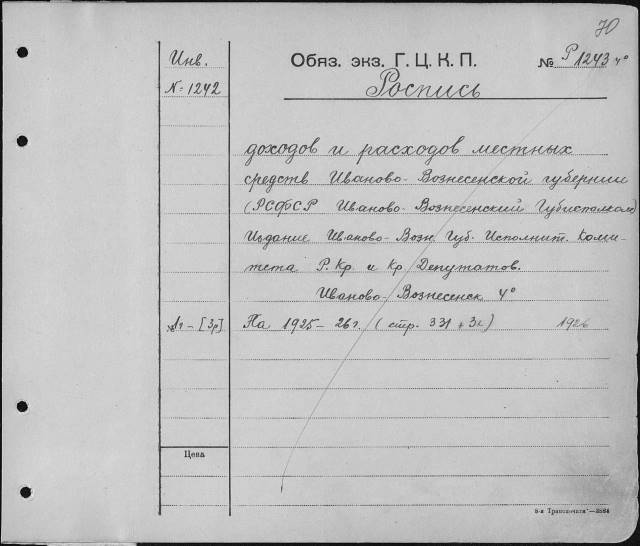 70
Инв.
№ 1242
Обяз. экз. Г. Ц. К. П.
№ Р 1243 4°
Роспись
доходов и расходов местных
средств Иваново-Вознесенской губернии
(РСФСР Иваново-Вознесенский Губисполком)
Издание Иваново-Возн. Губ. Исполнит. Коми-
тета Р. Кр. и Кр. Депутатов.
Иваново-Вознесенск 4°
На 1925-26 г. (стр. 331 + 3л) 1926
Цена